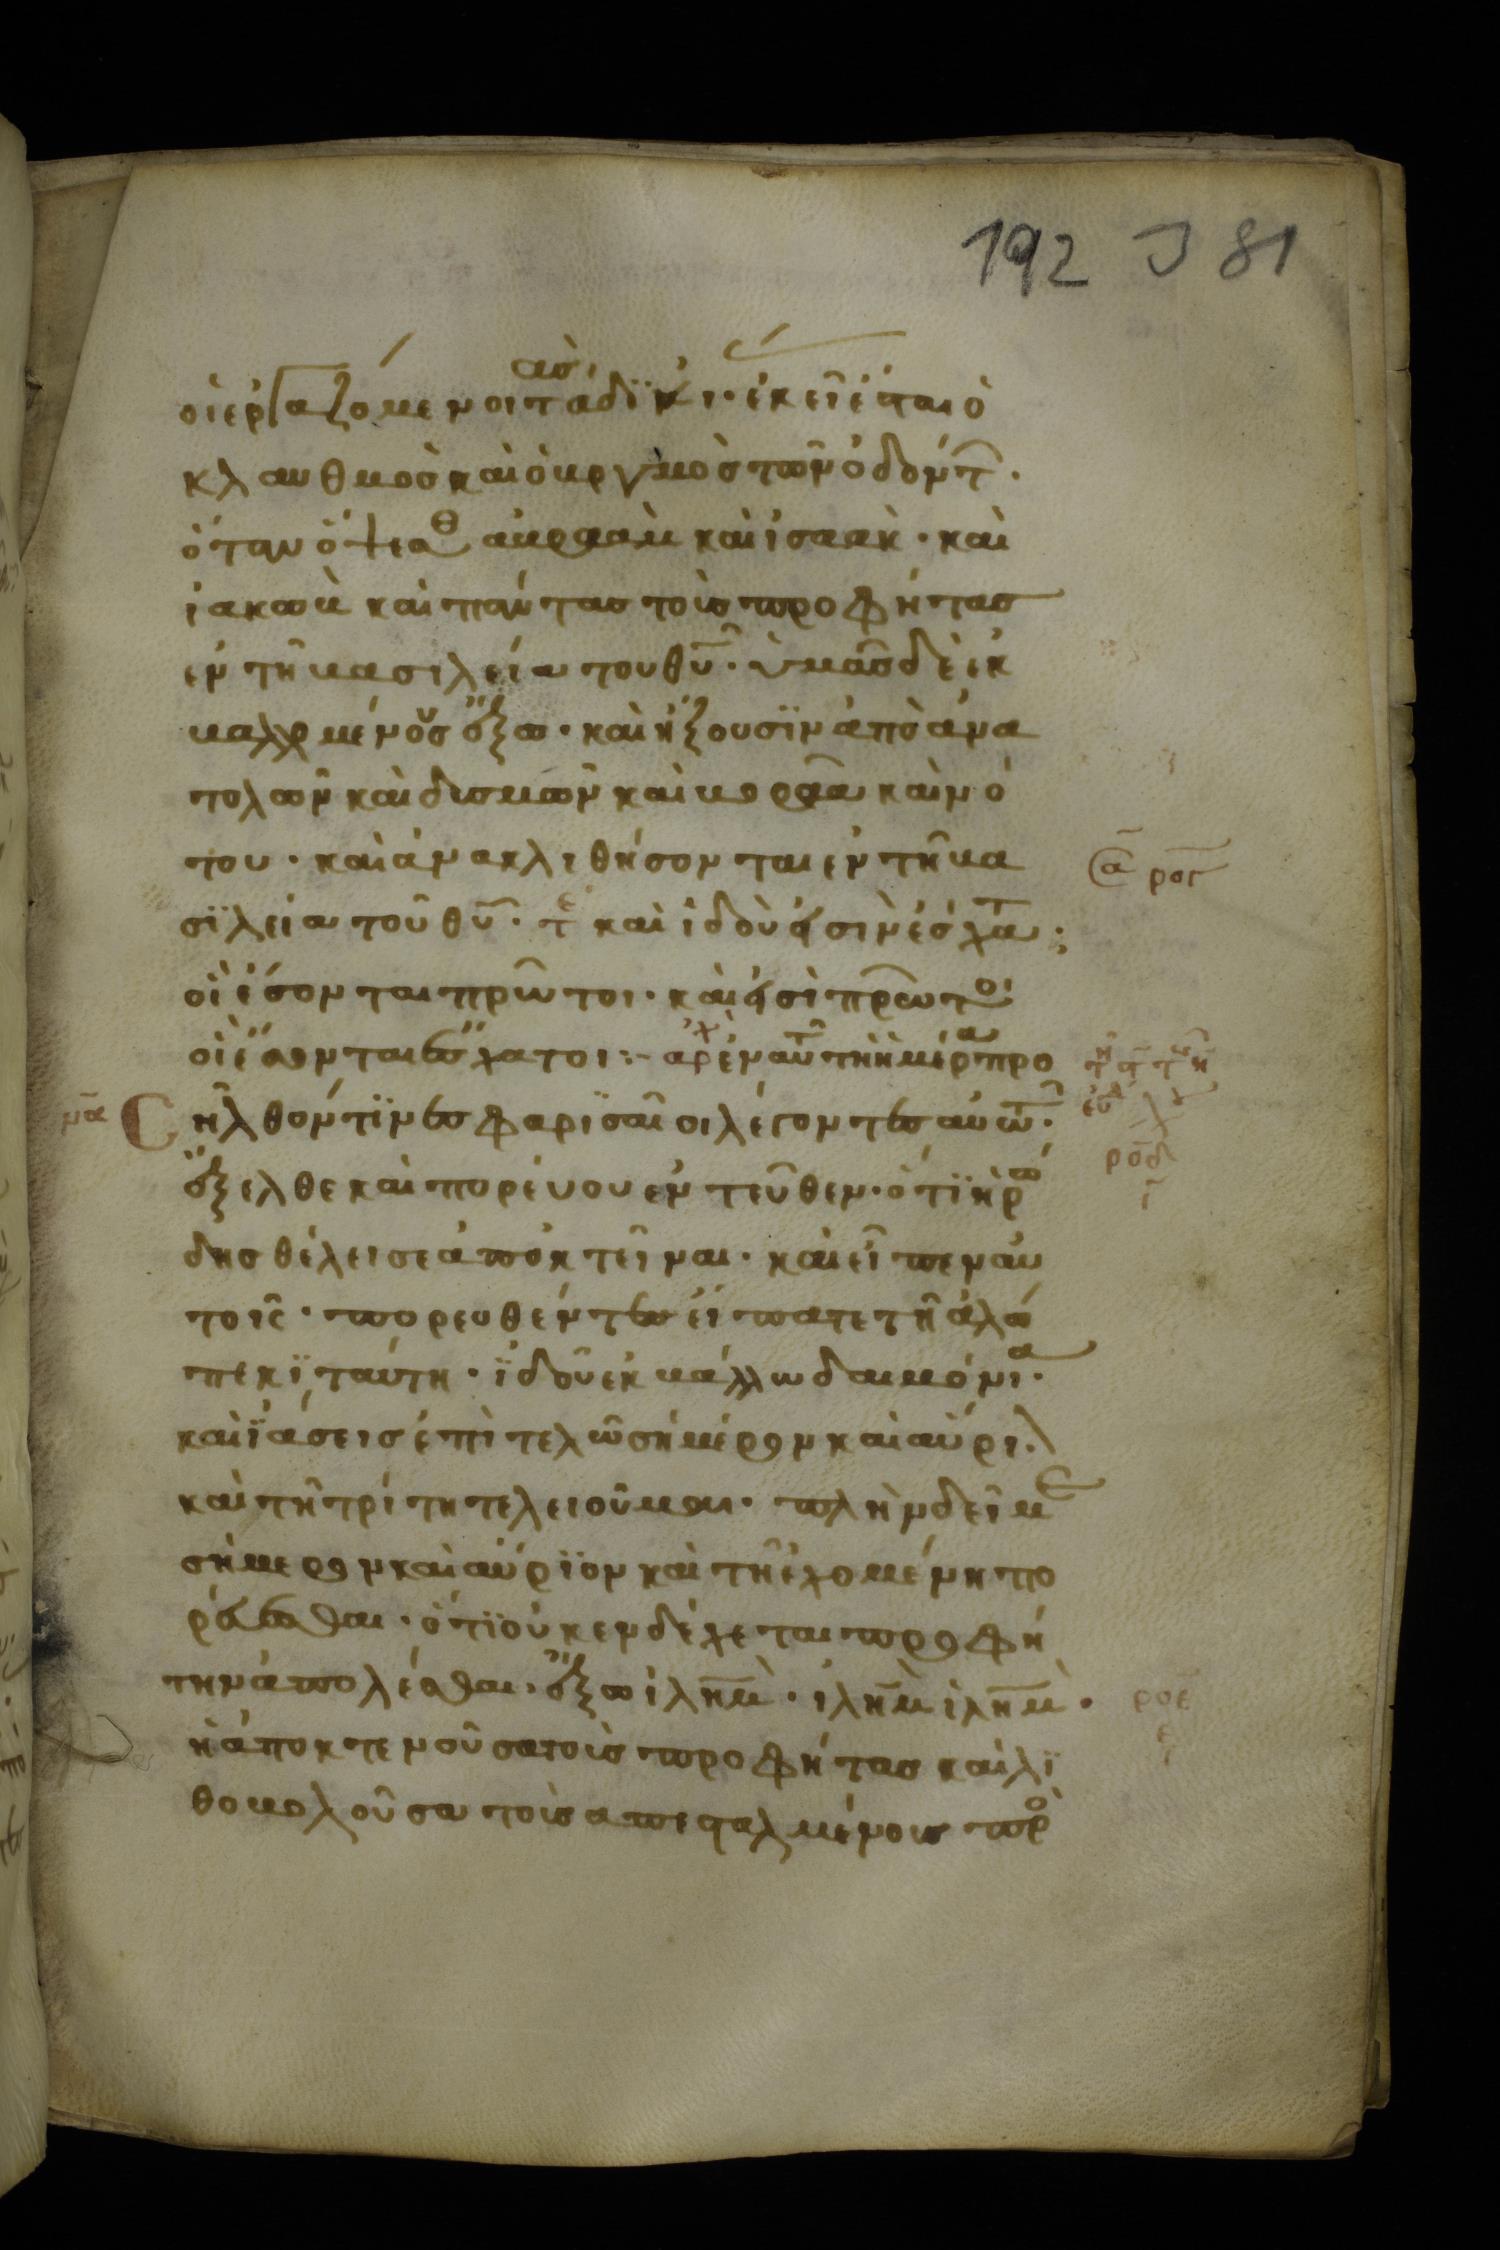 192 J 81
οἱ ἐργαζόμενοι τὰσ ἀδϊκί· ἐκεῖ ἔσται ὁ
κλαυθμοσ καὶ ὁ βρυγμὸσ τῶν ὀδόντ·
ὅταν ὄψεσθ αβρααμ καὶ ἰσαακ· καὶ
ἰακωβ καὶ πάντασ τοὺσ προφήτασ
ἐν τῆ βασιλεία του θυ· ὑμᾶσ δὲ ἐκ
βαλλομένουσ ἔξω· καὶ ἥξουσϊν ἀπὸ ἀνα
τολῶν καὶ δυσμῶν καὶ βορρᾶ καὶ νό
του· καὶ ἀνακλιθήσονται ἐν τῆ βα
σϊλεία τοῦ θυ· τε καὶ ἰδοὺ εἰσὶν ἔσχατ
οἳ ἔσονται πρῶτοι· καὶ εἰσὶ πρῶτοι
οἳ ἔσονται ἔσχατοι:- αρχ ἐν αὐτ τῆ ἡμέρα προ
σῆλθόν τϊνεσ φαρϊσαῖοι λέγοντεσ αὐτῶ·
ἔξελθε καὶ πορεύου ἐντεῦθεν· ὅτϊ ἡρώ
δησ θέλει σε ἀποκτεῖναι· καὶ εἶπεν αὐ
τοῖς· πορευθέντεσ εἴπατε τῆ ἀλώ
πεκϊ ταύτη· ἰδοῦ ἐκβάλλω δαιμόνια·
καὶ ἰάσεισ ἐπιτελῶ σήμερον καὶ αὔρι
καὶ τῆ τρίτη τελειοῦμαι· πλὴν δεῖ με
σήμερον καὶ αὔρϊον καὶ τῆ ἐχομένη πο
ρεύεσθαι· ὅτϊ οὐκ ενδέχεται προφή
την ἀπολέσθαι· ἔξω ἰλημ· ἰλημ ἰλημ·
ἡ ἀποκτενοῦσα τοὺσ προφήτασ καὶ λϊ
θοβολοῦσα τοὺσ απεσταλμένουσ πρὸ
ρογ
μα
ροδ
ι
ροε
ε